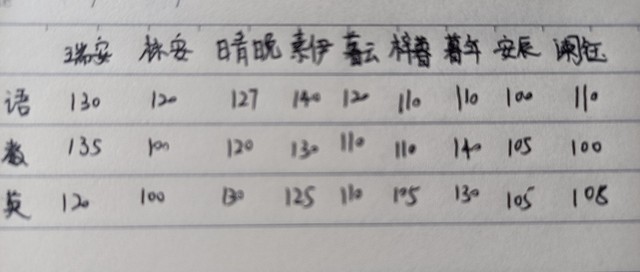 瑞安 林安 晴晚 素伊 暮云 梓暮 暮年 安辰 阑钰
语 130 120 127 140 120 110 110 100 110
数 135 100 120 130 110 110 140 105 100
英 120 100 130 125 110 105 130 105 108